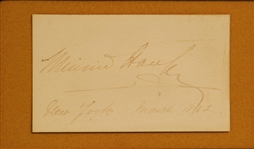 Minnie Hauk
New York March